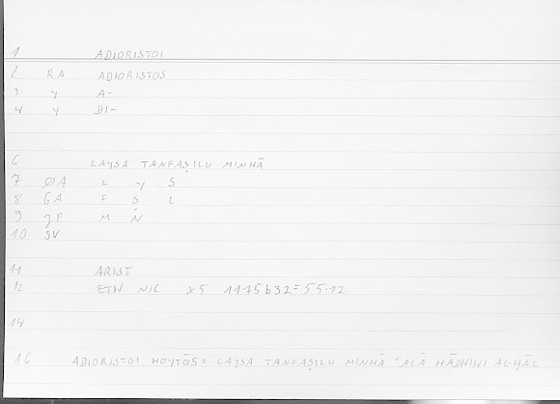 1 ADIORISTOI
2 RA ADIORISTOS
3 y A-
4 y DI-
6 LAYSA TANFAṢILU MINHĀ
7 ØA L y S
8 GA F Ṣ L
9 JP M N
10 SV
11 ARIST
12 ETH NIC X5 1175b32=55.12
14
16 ADIORISTOI HOYTŌS = LAYSA TANFAṢILU MINHĀ ʿALĀ